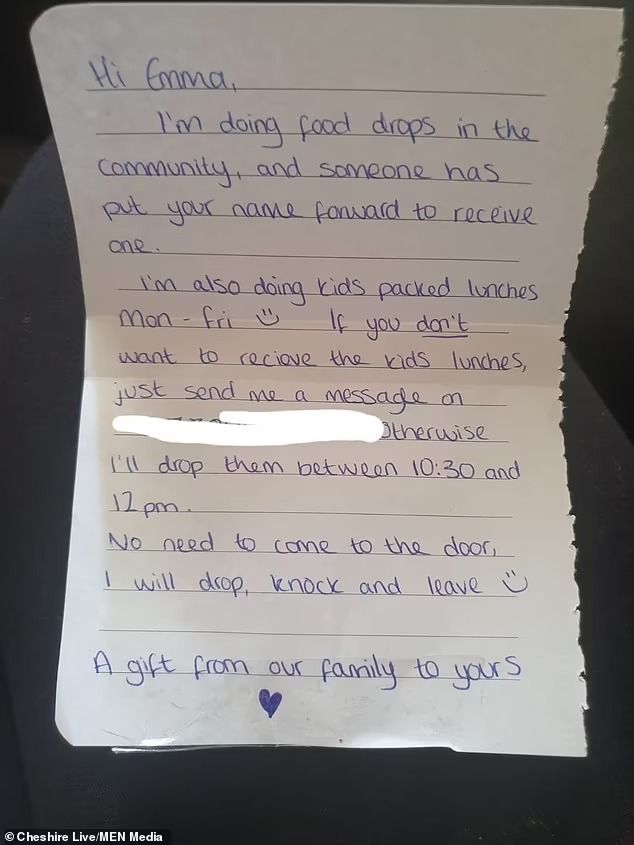 Hi Emma,
I'm doing food drops in the
community, and someone has
put your name forward to receive
one.
I'm also doing kids packed lunches
Mon - Fri If you don't
want to recieve the kids lunches,
just send me a message on
Otherwise
I'll drop them between 10:30 and
12pm.
No need to come to the door,
I will drop, knock and leave
A gift from our family to yours
© Cheshire Live/MEN Media